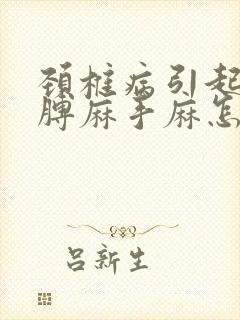 颈椎病引起
脾麻手麻怎
吕新生